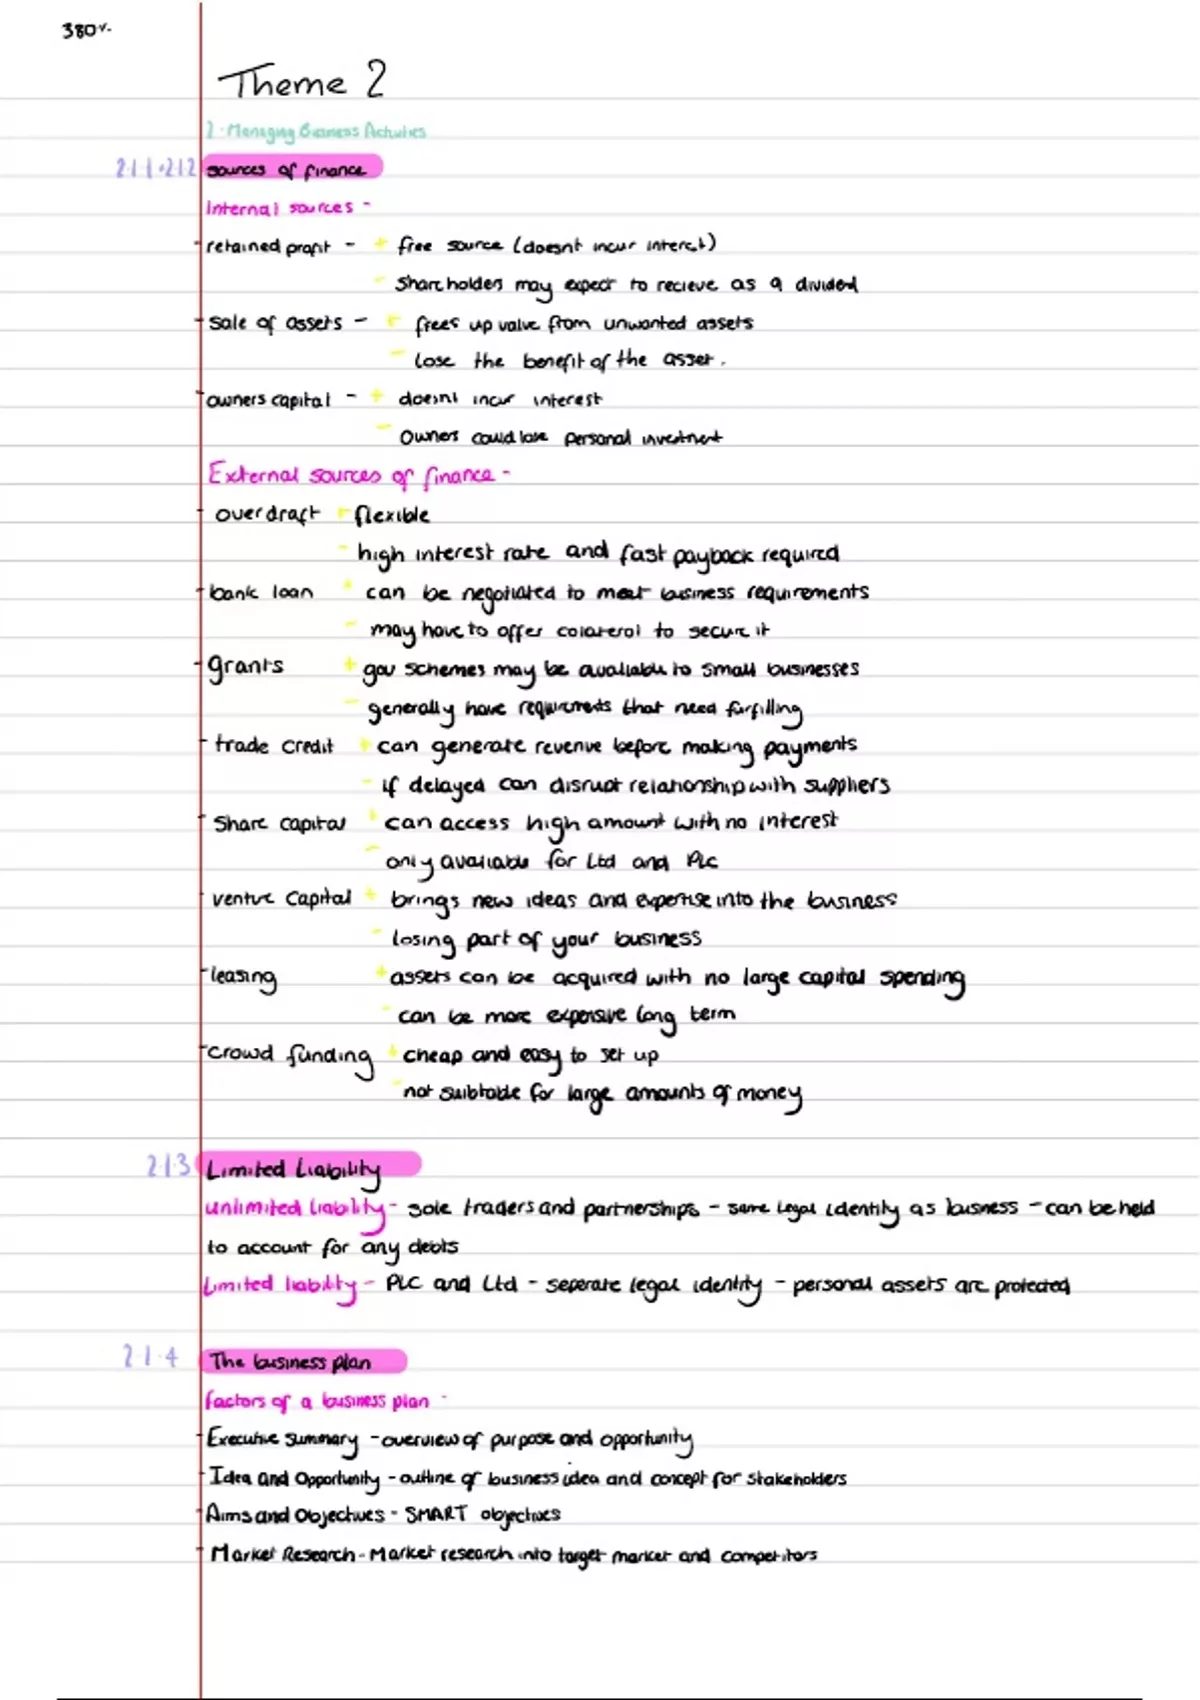 380v.
Theme 2
2. Managing Business Activities
2.1.1 + 2.1.2 sources of finance
Internal sources -
- retained profit - + free source (doesnt incur interest)
- Shareholders may expect to recieve as a divided
- Sale of assets - + frees up value from unwanted assets
- lose the benefit of the asset.
- owners capital - + doesnt incur interest
- Owners could lose personal investment
External sources of finance -
- overdraft + flexible
- high interest rate and fast payback required
- bank loan + can be negotiated to meet business requirements
- may have to offer colateral to secure it
- grants + gov schemes may be available to small businesses
- generally have requirments that need furfilling
- trade credit + can generate revenue before making payments
- if delayed can disrupt relationship with suppliers
- Share capital + can access high amount with no interest
- only available for Ltd and PLC
- venture Capital + brings new ideas and expertise into the business
- losing part of your business
- leasing + assets can be acquired with no large capital spending
- can be more expensive long term
- crowd funding + cheap and easy to set up
- not suibtable for large amounts of money
2.1.3 Limited Liability
unlimited liability - sole traders and partnerships - same legal identity as business - can be held
to account for any debts
Limited liability - PLC and Ltd - seperate legal identity - personal assets are protected
2.1.4 The business plan
factors of a business plan -
- Executive summary - overview of purpose and opportunity
- Idea and Opportunity - outline of business idea and concept for stakeholders
- Aims and Objectives - SMART objectives
- Market Research - Market research into target market and competitors